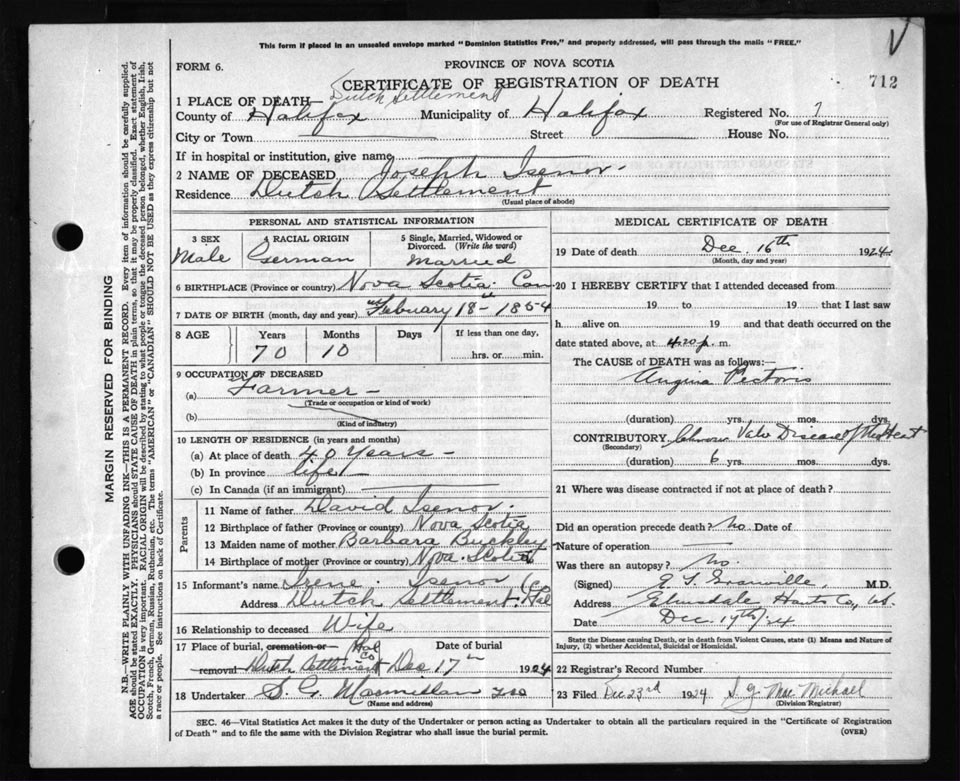 This form if placed in an unsealed envelope marked "Dominion Statistics Free," and properly addressed, will pass through the mails "FREE."
FORM 6.
PROVINCE OF NOVA SCOTIA
CERTIFICATE OF REGISTRATION OF DEATH
712
1 PLACE OF DEATH Dutch Settlement
County of Halifax Municipality of Halifax Registered No.
(For use of Registrar General only)
City or Town Street House No.
If in hospital or institution, give name
2 NAME OF DECEASED Joseph Isenor
Residence Dutch Settlement
(Usual place of abode)
PERSONAL AND STATISTICAL INFORMATION
3 SEX Male
4 RACIAL ORIGIN German
5 Single, Married, Widowed or Divorced. (Write the word) Married
6 BIRTHPLACE (Province or country) Nova Scotia Can
7 DATE OF BIRTH (month, day and year) Febuary 18th 1854
8 AGE Years Months Days If less than one day,
70 10 hrs. or min.
9 OCCUPATION OF DECEASED
(a) Farmer
(Trade or occupation or kind of work)
(b)
(Kind of industry)
10 LENGTH OF RESIDENCE (in years and months)
(a) At place of death 40 Years
(b) In province life
(c) In Canada (if an immigrant)
Parents
11 Name of father David Isenor
12 Birthplace of father (Province or country) Nova Scotia
13 Maiden name of mother Barbara Buckley
14 Birthplace of mother (Province or country) Nova Scotia
15 Informant's name Irene Isenor
Address Dutch Settlement Hal Co
16 Relationship to deceased Wife
17 Place of burial, cremation or removal Dutch Settlement Hal Co Date of burial Dec 17th 1924
18 Undertaker S. G. Macmillan
(Name and address)
MEDICAL CERTIFICATE OF DEATH
19 Date of death Dec. 16th 1924
(Month, day and year)
20 I HEREBY CERTIFY that I attended deceased from
19 to 19 that I last saw
h alive on 19 and that death occurred on the
date stated above, at 4.20 p. m.
The CAUSE of DEATH was as follows:—
Angina Pectoris
(duration) yrs. mos. dys.
CONTRIBUTORY Chronic Valv Disease of the Heart
(Secondary)
(duration) 6 yrs. mos. dys.
21 Where was disease contracted if not at place of death?
Did an operation precede death? No Date of
Nature of operation
Was there an autopsy? No.
(Signed) Granville, M.D.
Address Elmsdale Hants Co, N.S.
Date Dec. 19th/24
State the Disease causing Death, or in death from Violent Causes, state (1) Means and Nature of
Injury, (2) whether Accidental, Suicidal or Homicidal.
22 Registrar's Record Number
23 Filed Dec 23rd 1924 Mac Michael
(Division Registrar)
SEC. 46—Vital Statistics Act makes it the duty of the Undertaker or person acting as Undertaker to obtain all the particulars required in the "Certificate of Registration
of Death" and to file the same with the Division Registrar who shall issue the burial permit. (OVER)
MARGIN RESERVED FOR BINDING
N.B.—WRITE PLAINLY WITH UNFADING INK—THIS IS A PERMANENT RECORD. Every item of information should be carefully supplied.
AGE should be stated EXACTLY. PHYSICIANS should STATE CAUSE OF DEATH in plain terms, so that it may be properly classified. Exact statement of
OCCUPATION is very important. RACIAL ORIGIN will be described by stating to what people or tongue the deceased person belonged, whether English, Irish,
Scotch, French, German, Russian, Ruthenian, etc. The terms "AMERICAN" or "CANADIAN" SHOULD NOT BE USED as they express citizenship but not
a race or people. See instructions on back of Certificate.